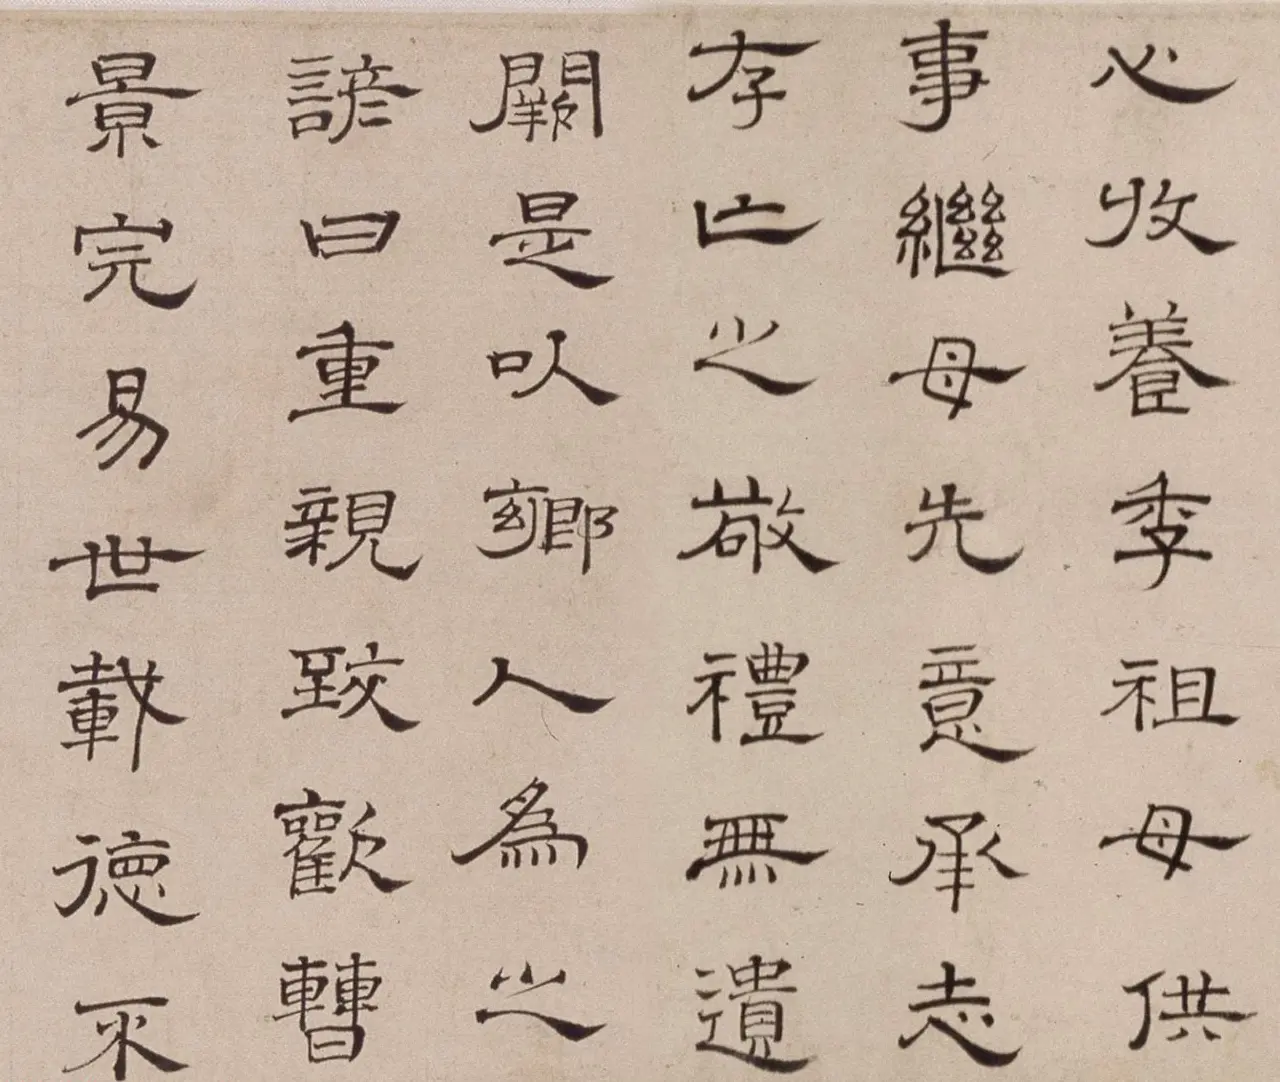 心收養季祖母供
事繼母先意承志
存亡之敬禮無遺
闕是以鄉人為之
諺曰重親致歡曹
景完易世載德不